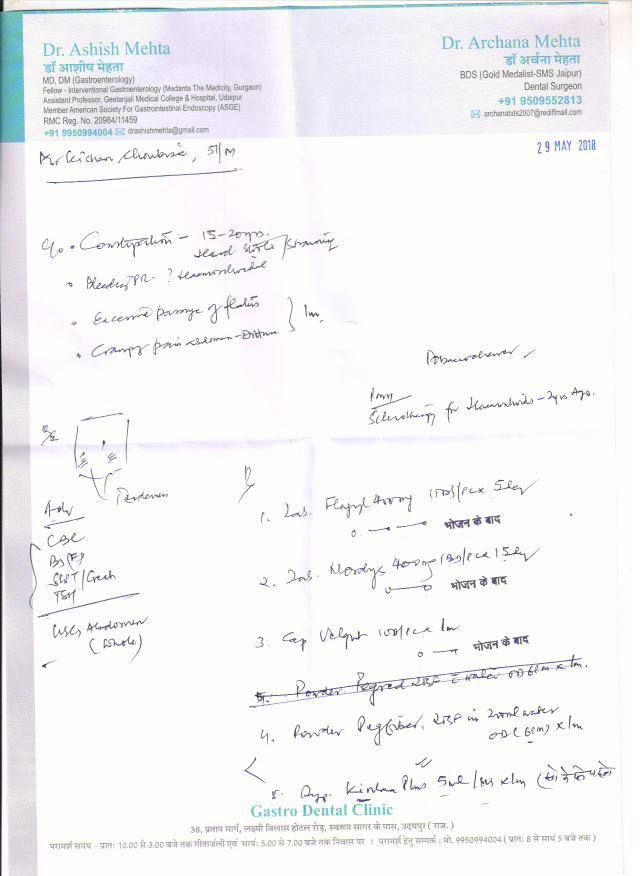 Dr. Ashish Mehta
डॉ आशीष मेहता
MD, DM (Gastroenterology)
Fellow - Interventional Gastroenterology (Medanta The Medicity, Gurgaon)
Assistant Professor, Geetanjali Medical College & Hospital, Udaipur
Member American Society For Gastrointestinal Endoscopy (ASGE)
RMC Reg. No. 20984/11459
+91 9950994004 drashishmehta@gmail.com
Dr. Archana Mehta
डॉ अर्चना मेहता
BDS (Gold Medalist-SMS Jaipur)
Dental Surgeon
+91 9509552813
archanabds2007@rediffmail.com
29 MAY 2018
51/m
c/o • Constipation - 15-20yrs.
Hard stools / Straining
• Bleeding PR. ? Haemorrhoidal
• Excessive passage of flatus
• Crampy pain abdomen - 1m
Sclerotherapy for Haemorrhoids - 2yrs Ago.
Adv
CBC
BS(F)
SGPT/Creat
TSH
USG Abdomen
(Whole)
Rx
1. Tab. Flagyl 400mg 1TDS/PC x 5day
भोजन के बाद
2. Tab. 400mg 1BD/PC x 15day
भोजन के बाद
3. Cap 1OD/PC x 1m
भोजन के बाद
4. Powder 2TBSF c water OD 6PM x 1m.
4. Powder Pegfiber, 2TBSF in 200ml water
OD (6PM) x 1m
5. Syp. Plus 5ml / HS x 1m
Gastro Dental Clinic
38, प्रताप मार्ग, लक्ष्मी विलास होटल रोड़, स्वरूप सागर के पास, उदयपुर ( राज. )
परामर्श समय - प्रातः 10.00 से 3.00 बजे तक गीतांजली एवं सायं: 5.00 से 7.00 बजे तक निवास पर । परामर्श हेतु सम्पर्क : मो. 9950994004 ( प्रातः 8 से सायं 5 बजे तक )